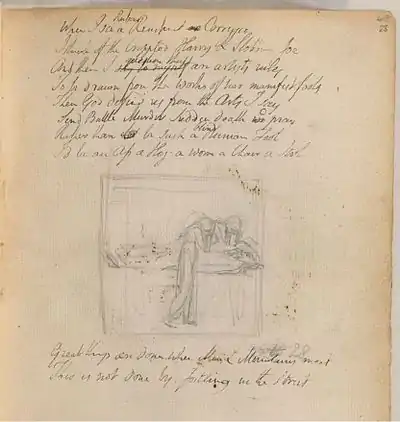 Rubens
When I see a Rembrant or Correggio
I think of the Crippled Harry & Slobbering Joe
question thus
And then I say to myself are artists rules
To be drawn from the works of two manifest fools
Then God defend us from the Arts I say
Send Battle Murder Sudden Death we pray
blind
Rather than be such a Human Fool
I'd be an Ass a Hog a worm a Chair a Stool
Great things are done when Men & Mountains meet
This is not done by Jostling in the Street